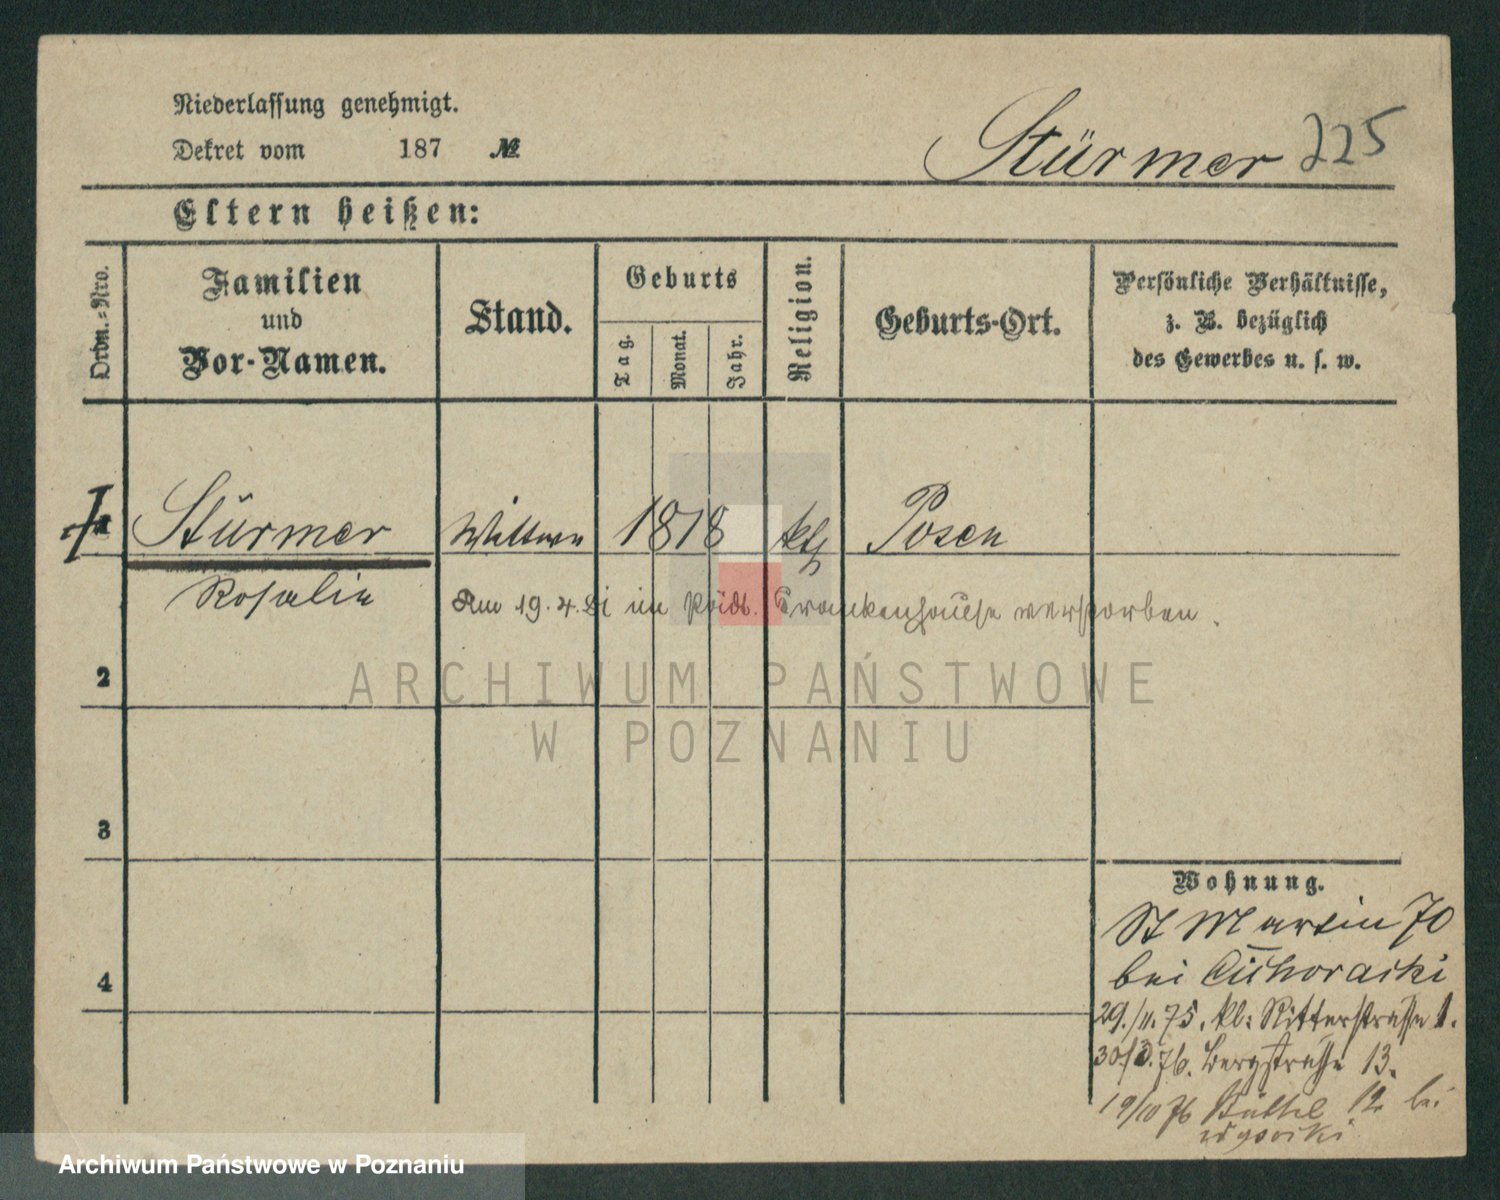 Niederlassung genehmigt.
Dekret vom 187 №
Stürmer 225
Eltern heißen:
Ordn.-Nro.
Familien
und
Vor-Namen.
Stand.
Geburts
Tag.
Monat.
Jahr.
Religion.
Geburts-Ort.
Persönliche Verhältnisse,
z. B. bezüglich
des Gewerbes u. s. w.
1 Stürmer Wittwe 1818 kth Posen
Rosalie
Am 19. 4. 81 im städt. Krankenhause verstorben.
2
3
4
Wohnung.
St Martin 70
bei
29./11. 75. kl: Ritterstrasse 1.
30/3. 76. Bergstrasse 13.
19/10 76 12 bei
Wysocki
ARCHIWUM PAŃSTWOWE
W POZNANIU
Archiwum Państwowe w Poznaniu